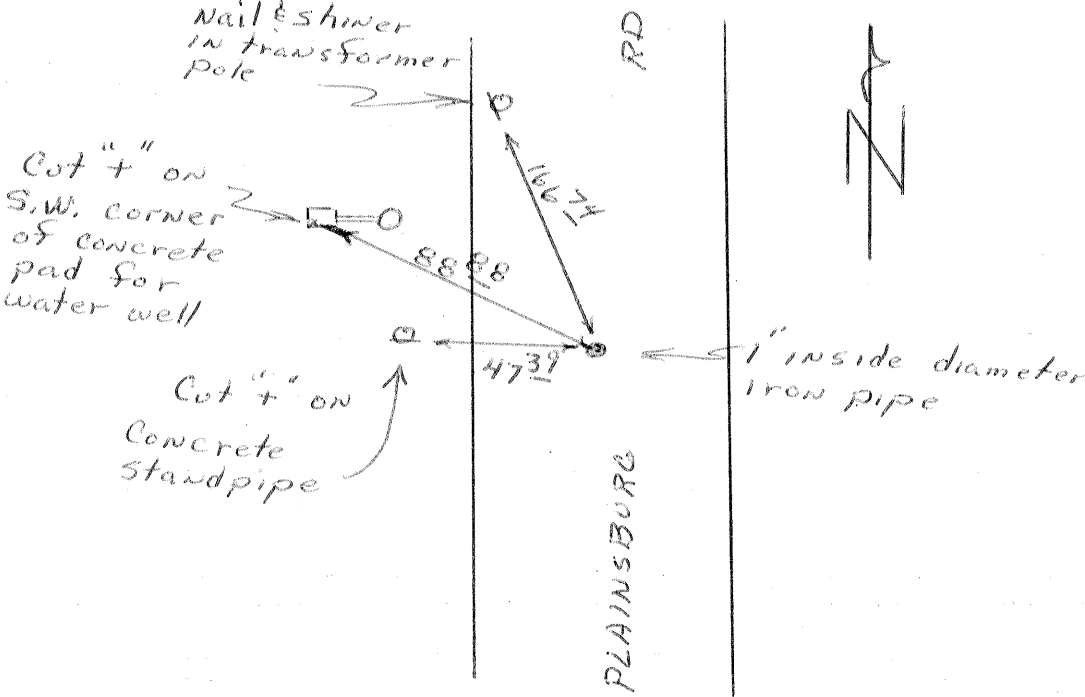 Nail & shiner
in transformer
pole
RD
N
Cut "+" on
S.W. corner
of concrete
pad for
water well
166 74
88 88
47 39
1" inside diameter
iron pipe
Cut "+" on
Concrete
standpipe
PLAINSBURG